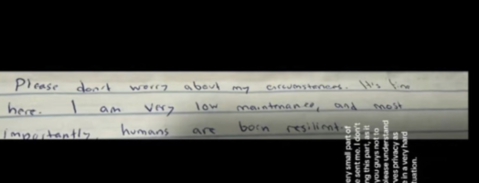 Please don't worry about my circumstances. It's fine
here. I am very low maintenance, and most
importantly, humans are born resilient
ery small part of
e sent me. I don't
ng this part, as it
you guys not to
please understand
ves privacy as
e in a very hard
tuation.